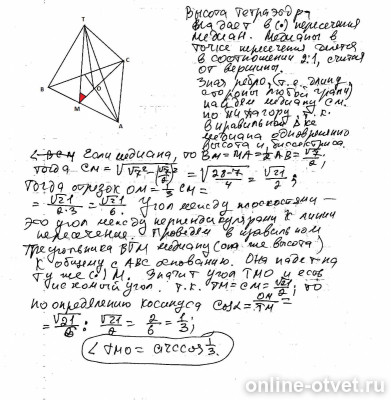 T
C
B
O
M
A
Высота тетраэдра
падает в (•) пересечения
медиан. Медианы в
точке пересечения делятся
в соотношении 2:1, считая
от вершины.
Зная ребро, (т.е. длину
стороны любой грани)
найдем медиану CM.
по Пифагору, т.к.
в правильном
медиана одновременно
высота и биссектриса.
Если медиана, то BM=MA=½AB=√7/2,
тогда CM=√(√7²-(√7/2)²)=√((28-7)/4)=√21/2;
Тогда отрезок OM=1/3 CM=
=√21/(2·3)=√21/6. Угол между плоскостями–
это угол между перпендикулярами к линии
пересечения. Проведем в правильном
треугольнике BTM медиану (она же высота)
к общему с ABC основанию. Она падет на
ту же (•) M. Значит угол TMO и есть
искомый угол. т.к. TM=CM=√21/2; то
по определению косинуса cosα=OM/TM=
=√21/6:√21/2=2/6=1/3;
∠TMO=arccos 1/3.
online-otvet.ru